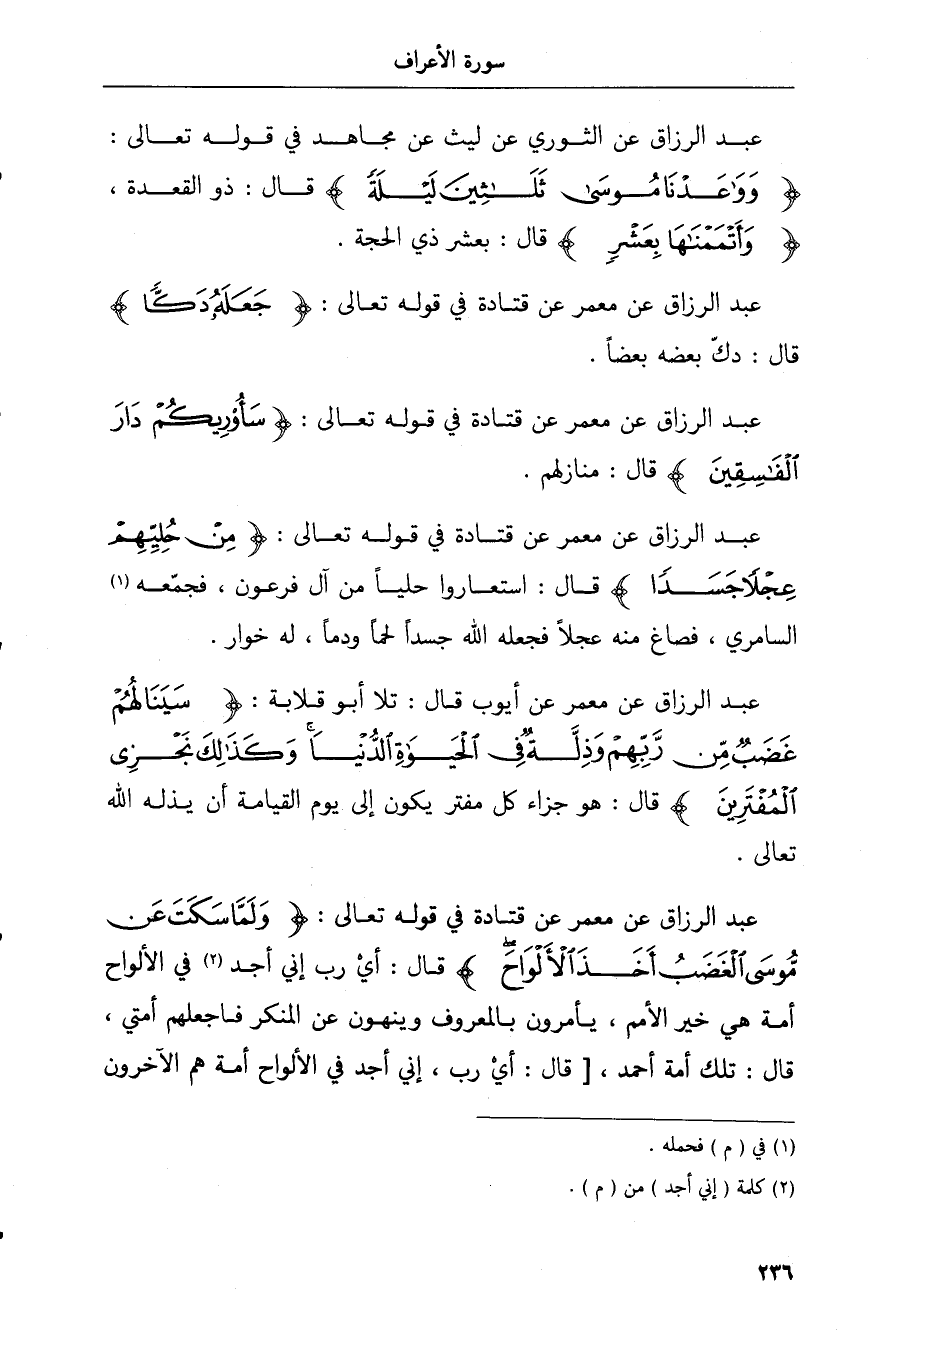 سورة الأعراف
عبد الرزاق عن الثوري عن ليث عن مجاهد في قوله تعالى :
﴿ وَوَٰعَدْنَا مُوسَىٰ ثَلَٰثِينَ لَيْلَةً ﴾ قال : ذو القعدة ،
﴿ وَأَتْمَمْنَٰهَا بِعَشْرٍ ﴾ قال : بعشر ذي الحجة .
عبد الرزاق عن معمر عن قتادة في قوله تعالى : ﴿ جَعَلَهُۥ دَكًّا ﴾
قال : دكّ بعضه بعضاً .
عبد الرزاق عن معمر عن قتادة في قوله تعالى : ﴿ سَأُو۟رِيكُمْ دَارَ
ٱلْفَٰسِقِينَ ﴾ قال : منازلهم .
عبد الرزاق عن معمر عن قتادة في قوله تعالى : ﴿ مِنْ حُلِيِّهِمْ
عِجْلًا جَسَدًا ﴾ قال : استعاروا حلياً من آل فرعون ، فجمّعه (١)
السامري ، فصاغ منه عجلاً فجعله الله جسداً لحماً ودماً ، له خوار .
عبد الرزاق عن معمر عن أيوب قال : تلا أبو قلابة : ﴿ سَيَنَالُهُمْ
غَضَبٌ مِّن رَّبِّهِمْ وَذِلَّةٌ فِى ٱلْحَيَوٰةِ ٱلدُّنْيَا ۚ وَكَذَٰلِكَ نَجْزِى
ٱلْمُفْتَرِينَ ﴾ قال : هو جزاء كل مفتر يكون إلى يوم القيامة أن يذله الله
تعالى .
عبد الرزاق عن معمر عن قتادة في قوله تعالى : ﴿ وَلَمَّا سَكَتَ عَن
مُّوسَى ٱلْغَضَبُ أَخَذَ ٱلْأَلْوَاحَ ۖ ﴾ قال : أيْ رب إني أجد (٢) في الألواح
أمة هي خير الأمم ، يأمرون بالمعروف وينهون عن المنكر فاجعلهم أمتي ،
قال : تلك أمة أحمد ، [ قال : أيْ رب ، إني أجد في الألواح أمة هم الآخرون
(١) في ( م ) فحمله .
(٢) كلمة ( إني أجد ) من ( م ) .
٢٣٦